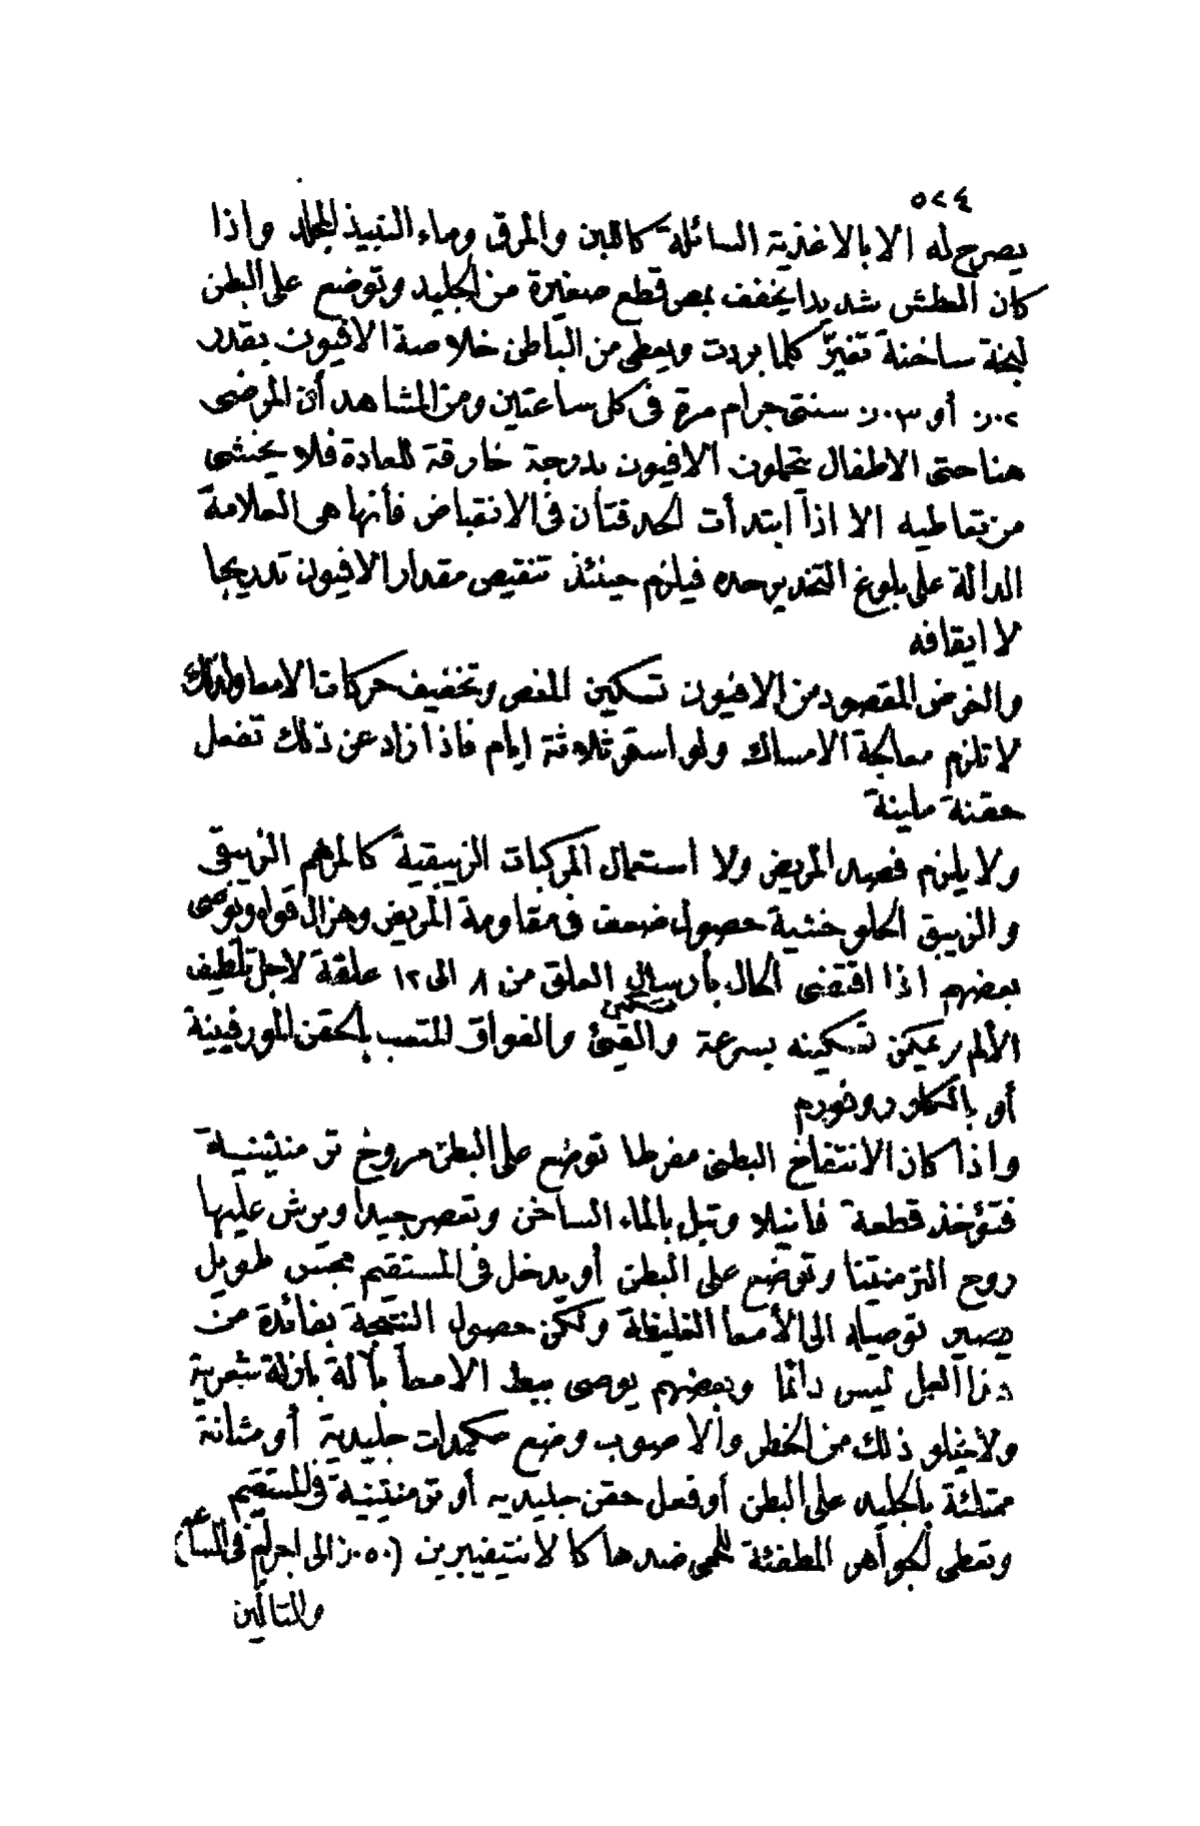 ٥٢٤
يصرح له الا بالاغذية السائلة كاللبن والمرق وماء النبيذ المجلد واذا
كان العطش شديدا يخفف بمص قطع صغيرة من الجليد وتوضع على البطن
لبخة ساخنة تغيرّ كلما بردت ويعطى من الباطن خلاصة الافيون بقدر
٠٢ر٠ أو ٠٣ر٠ سنتى جرام مرة فى كل ساعتين ومن المشاهد أن المرضى
هنا حتى الاطفال يتحملون الافيون بدرجة خارقة للعادة فلا يخشى
من تعاطيه الا اذا ابتدأت الحدقتان فى الانقباض فأنها هى العلامة
الدالة على بلوغ التخدير حده فيلزم حينئذ تنقيص مقدار الافيون تدريجا
لا ايقافه
والغرض المقصود من الافيون تسكين المغص وتخفيف حركات الامعا ولذلك
لا تلزم معالجة الامساك ولو استمر ثلاثة ايام فاذا زاد عن ذلك تفعل
حقنة ملينة
ولا يلزم فصد المريض ولا استعمال المركبات الزيبقية كالمرهم الزيبقى
والزيبق الحلو خشية حصول ضعف فى مقاومة المريض وهزال قواه ويوصى
بعضهم اذا اقتضى الحال بأرسال العلق من ٨ الى ١٢ علقة لاجل تلطيف
الألم ويمكن تسكينه بسرعة وتسكين القيئ والفواق المتعب بالحقن المورفينية
أو بالكلوروفورم
واذا كان الانتفاخ البطنى مفرطا توضع على البطن مروخ ترمنتينية
فتؤخذ قطعة فانيلا وتبل بالماء الساخن وتعصر جيدا ويرش عليها
روح الترمنتينا وتوضع على البطن أو يدخل فى المستقيم مجس طويل
يصير توصيله الى الأمعا الغليظة ولكن حصول النتيجة بفائدة من
هذا العمل ليس دائما وبعضهم يوصى ببط الامعا بآلة بازلة شعرية
ولا يخلو ذلك من الخطر والاصوب وضع مكمدات جليدية أو مثانة
ممتلئة بالجليد على البطن أو فعل حقن جليديه أو ترمنتينية فى المستقيم
وتعطى الجواهر المطفئة للحمى ضدها كالانتيفيبرين (٥٠ر٠ الى ١ جرام فى المسا)
والتالين